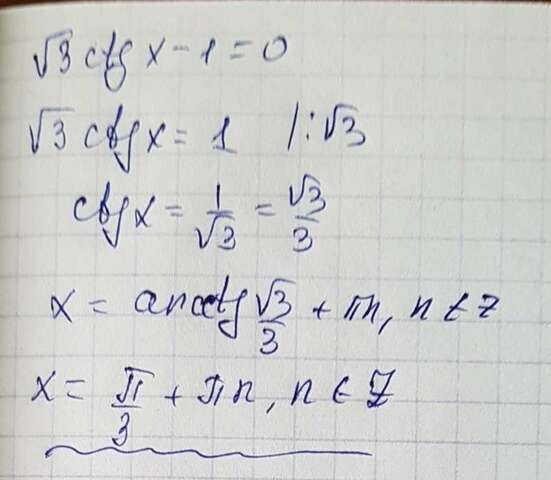 √3 ctg x - 1 = 0
√3 ctg x = 1 /:√3
ctg x = 1/√3 = √3/3
x = arcctg √3/3 + πn, n ∈ Z
x = π/3 + πn, n ∈ Z